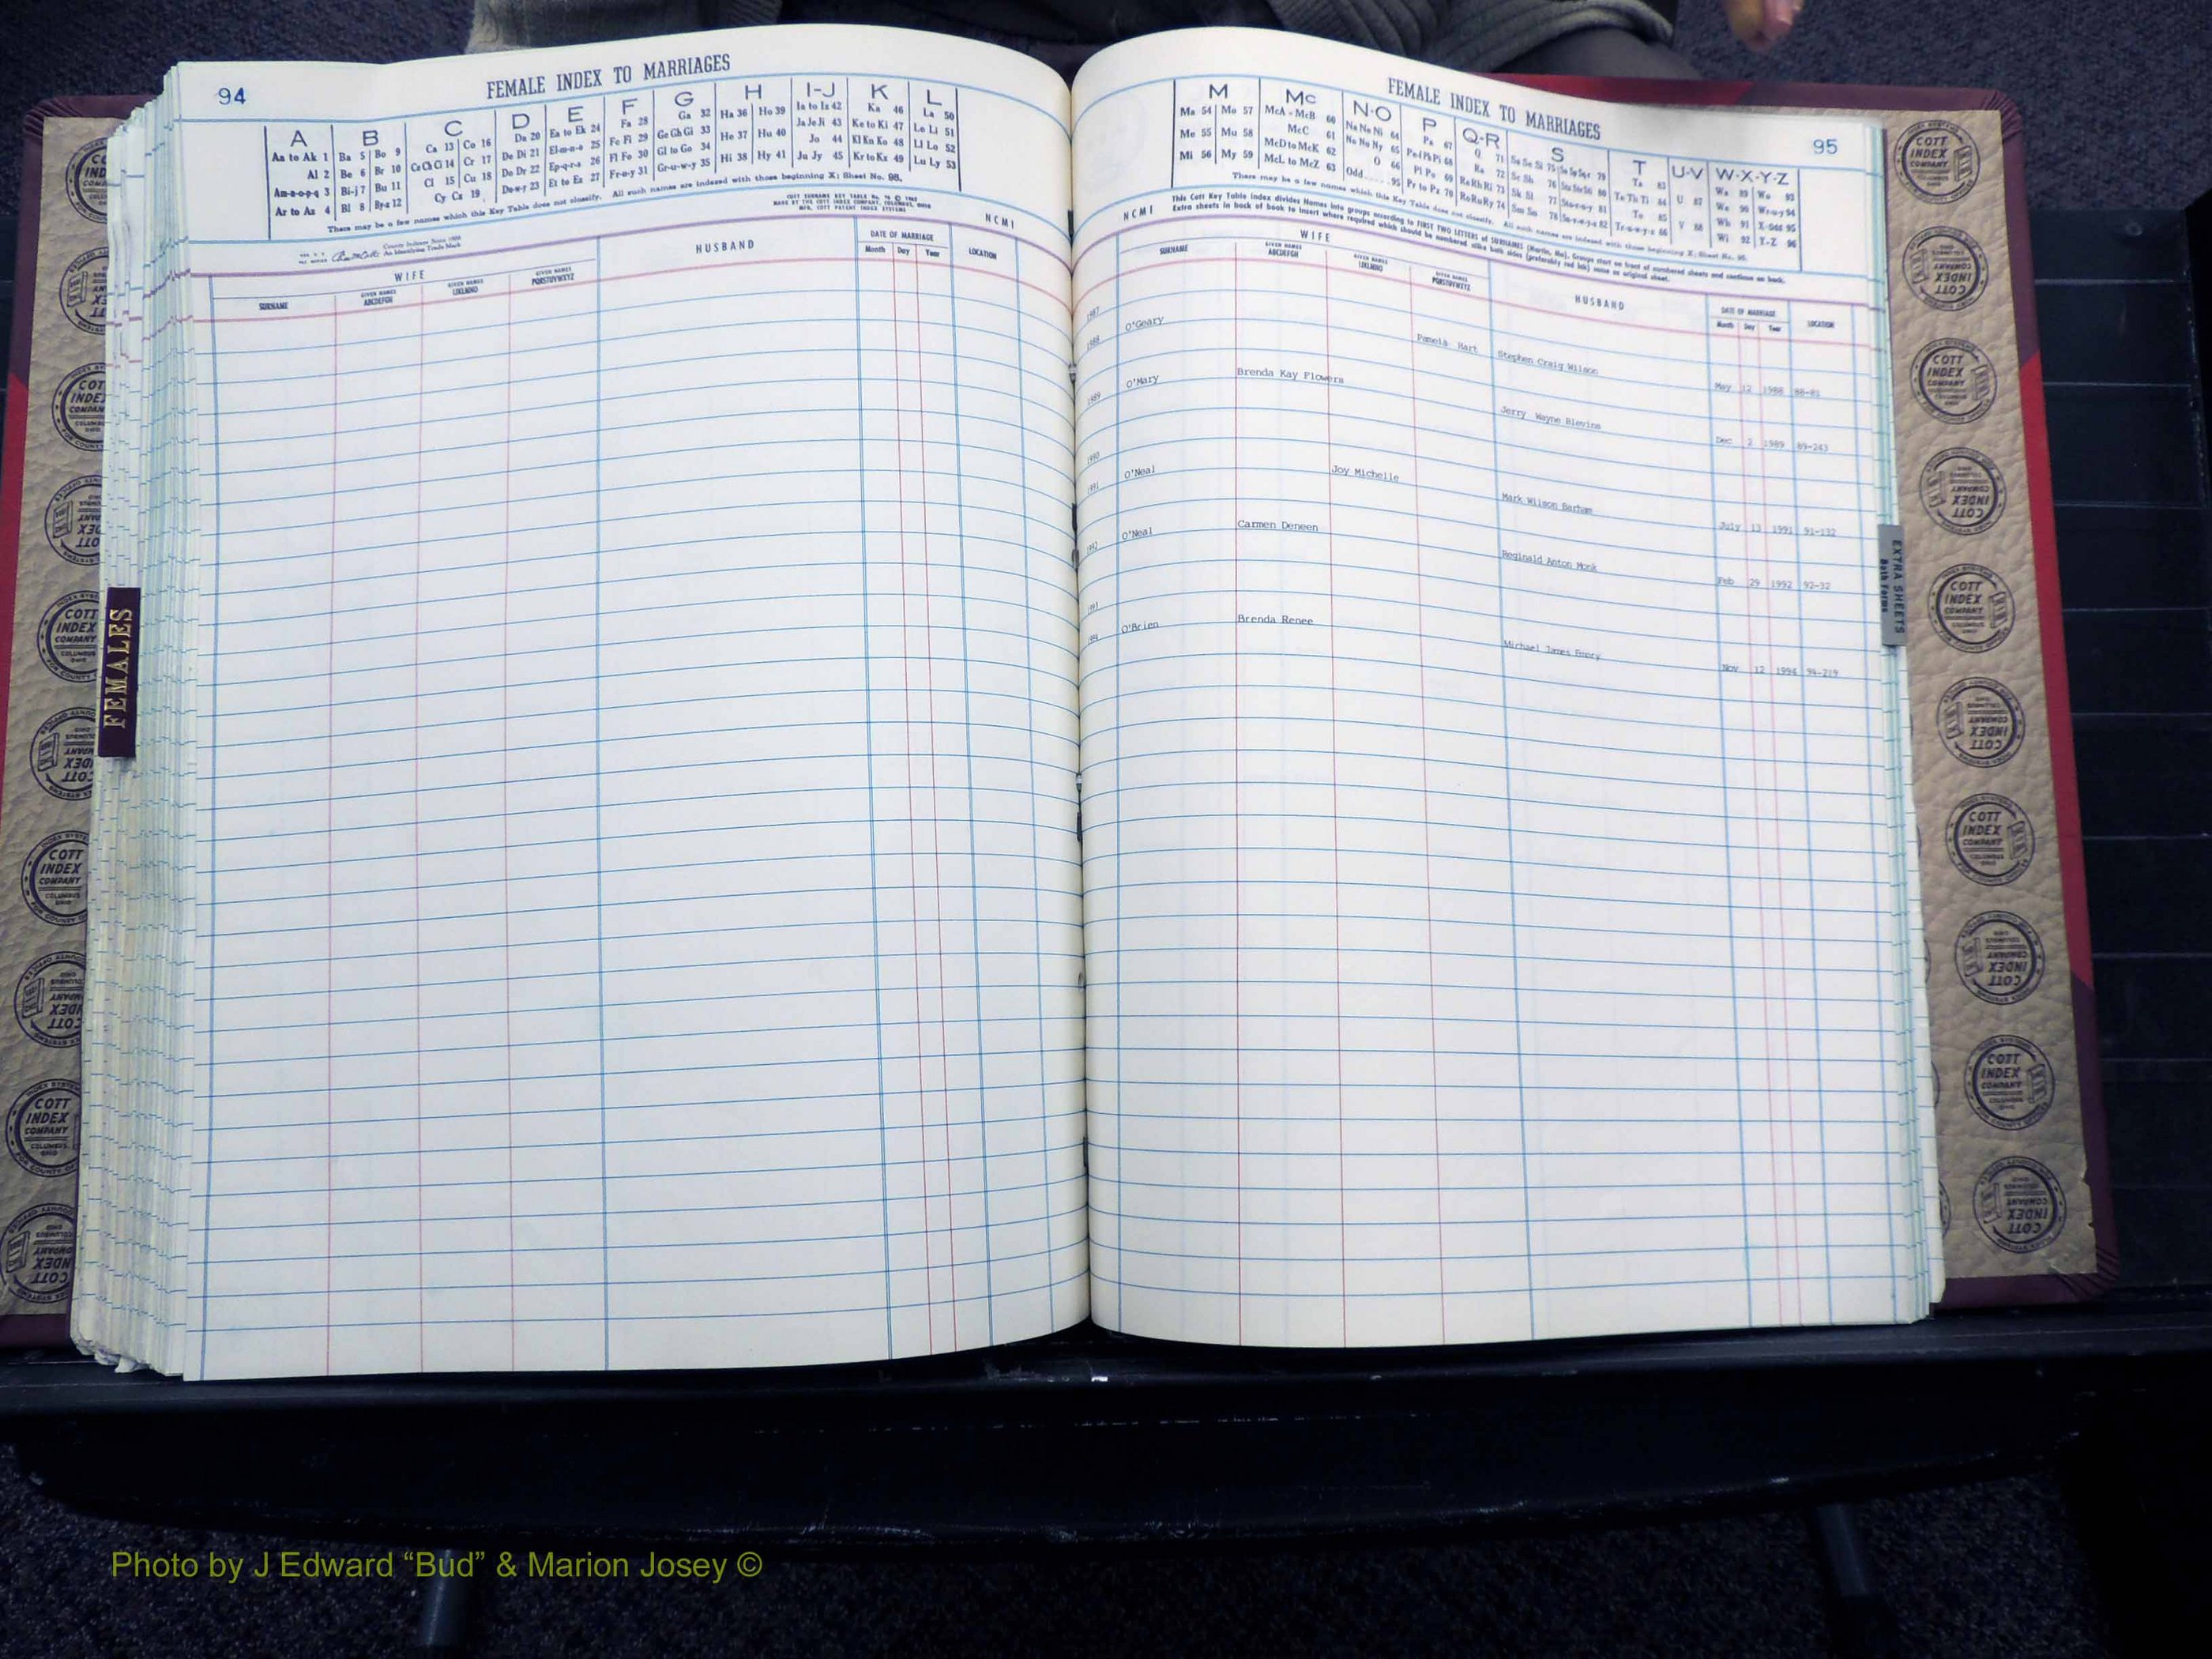 94
FEMALE INDEX TO MARRIAGES
A B C D E F G H I-J K L
Aa to Ak 1 Ba 5 Bo 9 Ca 13 Co 16 Da 20 Ea to Ek 24 Fa 28 Ga 32 Ha 36 Ho 39 Ia to Iz 42 Ka 46 La 50
Al 2 Be 6 Br 10 Ce Ch Ci 14 Cr 17 De Di 21 El-m-n-o 25 Fe Fi 29 Ge Gh Gi 33 He 37 Hu 40 Ja Je Ji 43 Ke to Ki 47 Le Li 51
Am-n-o-p-q 3 Bi-j 7 Bu 11 Cl 15 Cu 18 Do Dr 22 Ep-q-r-s 26 Fl Fo 30 Gl to Go 34 Hi 38 Hy 41 Jo 44 Kl Kn Ko 48 Ll Lo 52
Ar to Az 4 Bl 8 By-z 12 Cy Cz 19 Du-w-y 23 Et to Ez 27 Fr-u-y 31 Gr-u-w-y 35 Ju Jy 45 Kr to Kx 49 Lu Ly 53
There may be a few names which this Key Table does not classify. All such names are indexed with those beginning X; Sheet No. 95.
NCMI
WIFE
HUSBAND
DATE OF MARRIAGE
SURNAME
GIVEN NAMES ABCDEFGH
GIVEN NAMES IJKLMNO
GIVEN NAMES PQRSTUVWXYZ
Month Day Year
LOCATION
FEMALES
FEMALE INDEX TO MARRIAGES
95
M Mc N-O P Q-R S T U-V W-X-Y-Z
Ma 54 Mo 57 McA - McB 60 Na Ne Ni 64 Pa 67 Q 71 Sa Se Si 75 Ta 83 U 87 Wa 89 Wo 93
Me 55 Mu 58 McC 61 No Nu Ny 65 Pe-f Ph Pi 68 Ra 72 Sc Sh 76 Te Th Ti 84 V 88 We 90 Wr-u-y 94
Mi 56 My 59 McD to McK 62 O 66 Pl Po 69 Re Rh Ri 73 Sk Sl 77 To 85 Wh 91 X-Odd 95
McL to McZ 63 Odd 95 Pr to Pz 70 Ro Ru Ry 74 Sm Sn 78 Tr-u-w-y-z 86 Wi 92 Y-Z 96
There may be a few names which this Key Table does not classify. All such names are indexed with those beginning X; Sheet No. 95.
NCMI
This Cott Key Table Index divides Names into groups according to FIRST TWO LETTERS of SURNAMES (Martin, Ma). Groups start on front of numbered sheets and continue on back.
Extra sheets in back of book to insert where required which should be numbered alike both sides (preferably red ink) same as original sheet.
WIFE
HUSBAND
DATE OF MARRIAGE
SURNAME
GIVEN NAMES ABCDEFGH
GIVEN NAMES IJKLMNO
GIVEN NAMES PQRSTUVWXYZ
Month Day Year
LOCATION
1987
1988 O'Geary Pamela Hart Stephen Craig Wilson May 12 1988 88-81
1989 O'Mary Brenda Kay Flowers Jerry Wayne Blevins Dec 2 1989 89-243
1990
1991 O'Neal Joy Michelle Mark Wilson Barham July 13 1991 91-132
1992 O'Neal Carmen Deneen Reginald Anton Monk Feb 29 1992 92-32
1993
1994 O'Brien Brenda Renee Michael James Emory Nov 12 1994 94-219
EXTRA SHEETS
Both Forms
COTT INDEX COMPANY
COLUMBUS OHIO
Photo by J Edward “Bud” & Marion Josey ©